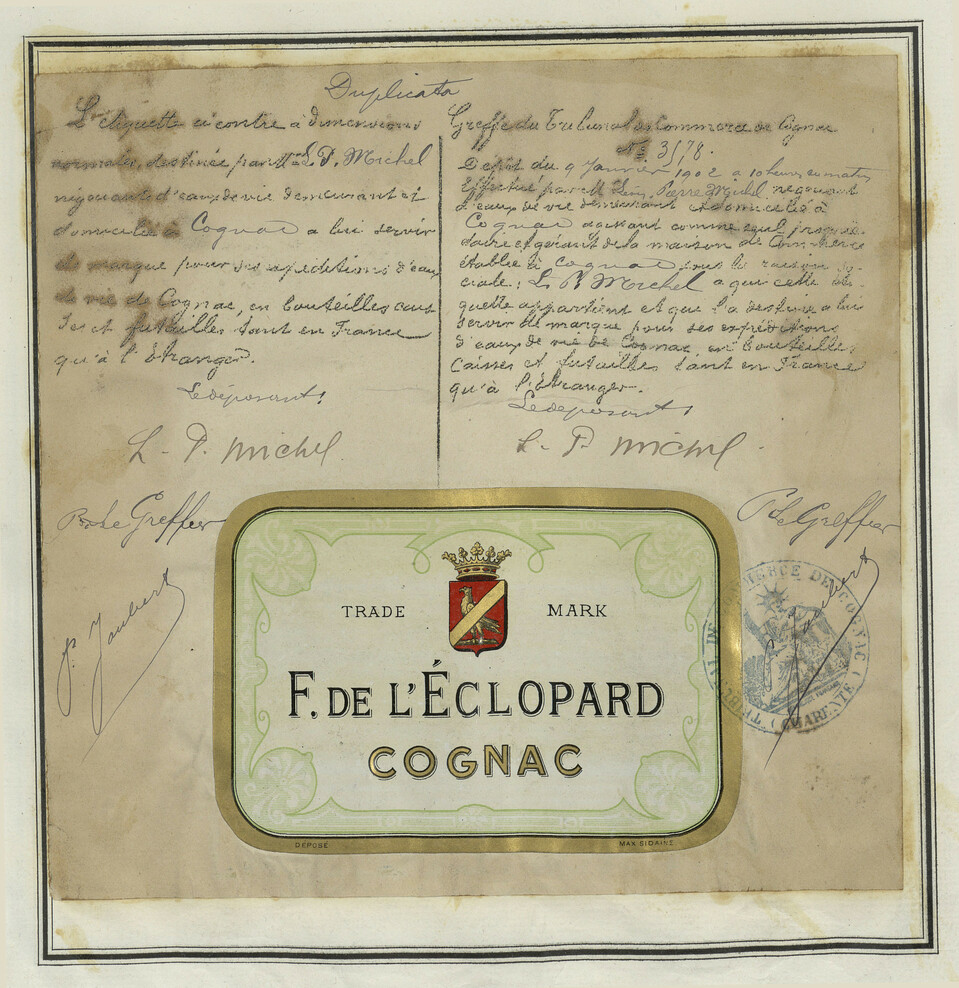 Duplicata
L'étiquette ci contre à dimensions
normales, destinée par Mr L. P. Michel
négociant d'eaux de vie demeurant et
domicilié à Cognac a lui servir
de marque pour ses expéditions d'eau
de vie de Cognac, en bouteilles cais
ses et futailles tant en France
qu'à l'Etranger.
Le déposant,
L. P. Michel
Le Greffier
P. Jaubert
Greffe du Tribunal de Commerce de Cognac
No 3578.
Dépôt du 9 Janvier 1902 à 10 heures matin
Effectué par M Pierre Michel négociant
d'eaux de vie demeurant et domicilié à
Cognac agissant comme seul proprié
taire et gérant de la maison de Commerce
établie à Cognac sous la raison so
ciale: L. P. Michel a qui cette éti
quette appartient et que l'a destinée a lui
servir de marque pour ses expéditions
d'eaux de vie de Cognac, en bouteilles,
Caisses et futailles tant en France
qu'à l'Etranger.
Le déposant,
L. P. Michel
Le Greffier
Jaubert
TRIBUNAL DE COMMERCE DE COGNAC
(CHARENTE)
TRADE MARK
F. DE L'ÉCLOPARD
COGNAC
DÉPOSÉ
MAX SIDAINE